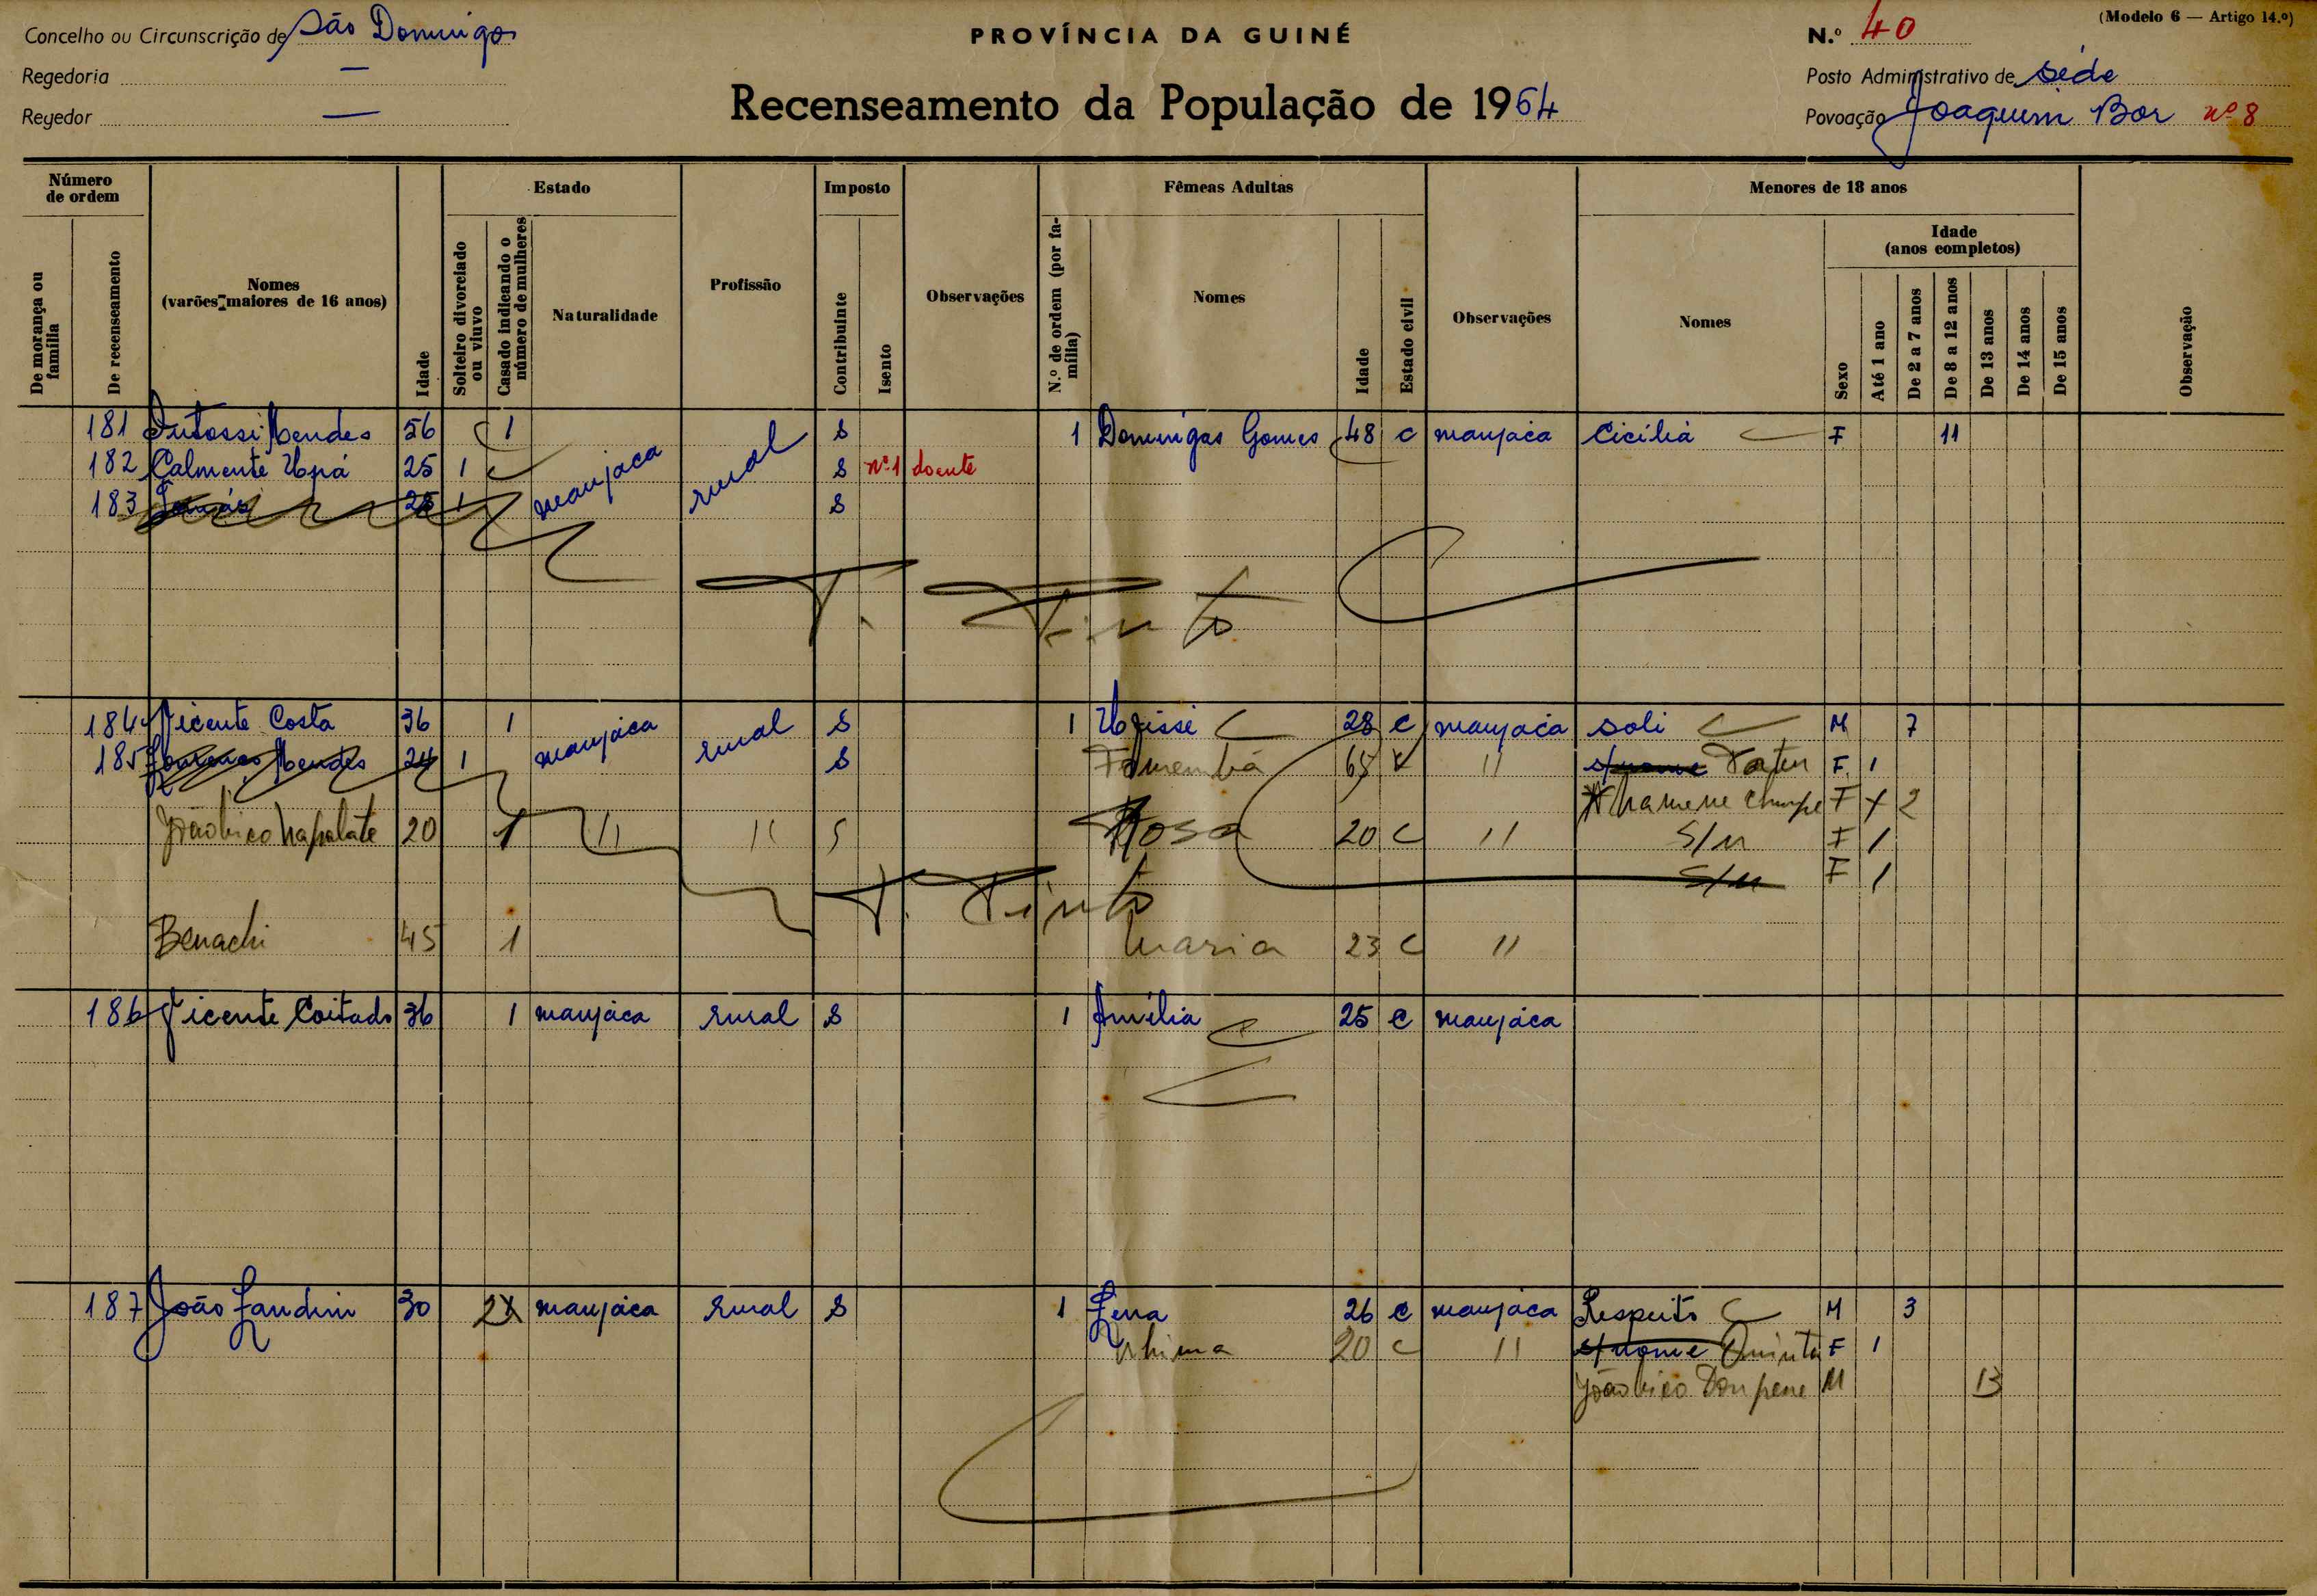 (Modelo 6 — Artigo 14.º)
Concelho ou Circunscrição de São Domingos
PROVÍNCIA DA GUINÉ
N.º 40
Regedoria —
Posto Administrativo de Séde
Regedor —
Recenseamento da População de 1964
Povoação Joaquim Bor nº 8
Número de ordem
Estado
Imposto
Fêmeas Adultas
Menores de 18 anos
Idade (anos completos)
De morança ou família
De recenseamento
Nomes (varões maiores de 16 anos)
Idade
Solteiro divorciado ou viuvo
Casado indicando o número de mulheres
Naturalidade
Profissão
Contribuinte
Isento
Observações
N.º de ordem (por família)
Nomes
Idade
Estado civil
Observações
Nomes
Sexo
Até 1 ano
De 2 a 7 anos
De 8 a 12 anos
De 13 anos
De 14 anos
De 15 anos
Observação
181 Mendes 56 1 manjaca rural S 1 Domingas Gomes 48 C manjaca Cicília F 11
182 Calmente 25 1 S nº 1 doente
183 25 1 S
T. Pinto
184 Vicente Costa 36 1 manjaca rural S 1 28 C manjaca Soli M 7
185 Mendes 24 1 S 65 " s/nome F 1
F 2
20 1 " " S Rosa 20 C " S/n F 1
S/n F 1
T. Pinto
Benachi 45 1 Maria 23 C "
186 Vicente Coitado 36 1 manjaca rural S 1 Amélia 25 C manjaca
187 João Landim 30 2 manjaca rural S 1 26 C manjaca Respeito M 3
Nhima 20 C " s/nome Quinta F 1
M 13